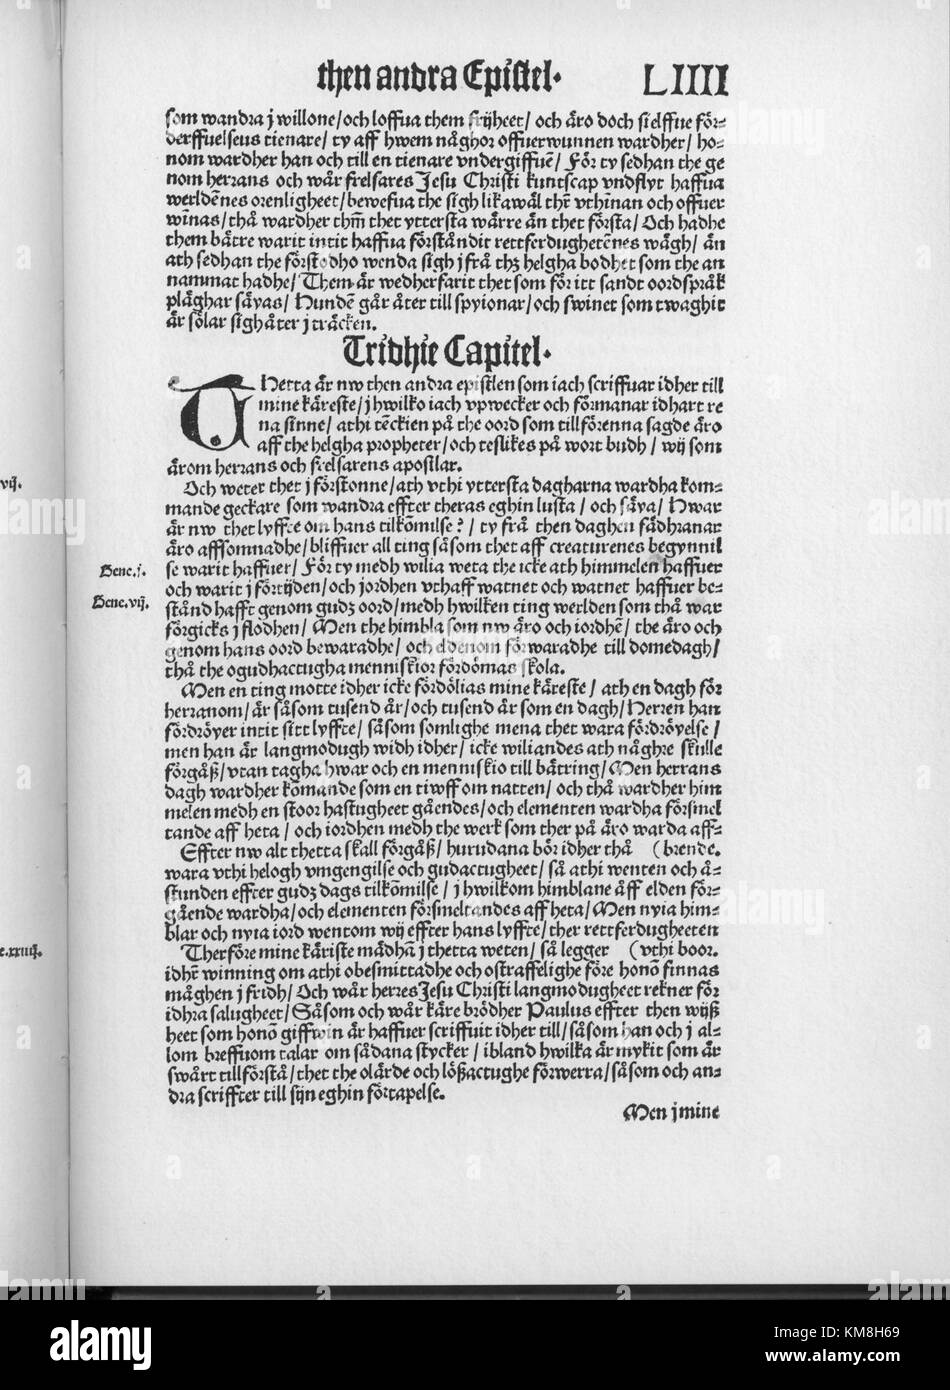 then andra Epistel· LIIII
som wandra j willone/och loffua them frijheet/ och äro doch sielffue för=
derffuelseus tienare/ ty aff hwem någhor offuerwunnen wardher/ ho=
nom wardher han och till en tienare vndergiffuē/ För ty sedhan the ge
nom herrans och wår frelsares Jesu Christi kuntscap vndflyt haffua
werldēnes orenligheet/bewefua the sigh likawäl thr̄ vthinan och offuer
wīnas/thå wardher thm̄ thet yttersta wärre än thet första/ Och hadhe
them bätre warit intit haffua förståndit rettferdughetēnes wägh/ än
ath sedhan the förstodho wenda sigh j frå thz helgha bodhet som the an
nammat hadhe/ Them är wedherfarit thet som för itt sandt oordspråk
pläghar säyas/ Hundē går åter till spyionar/och swinet som twaghit
är sölar sigh åter j träcken.
Tridhie Capitel·
THetta är nw then andra epistlen som iach scriffuar idher till
mine käreste/ j hwilko iach vpwecker och förmanar idhart re
na sinne/ athi tēckien på the oord som tillförenna sagde äro
aff the helgha propheter/och teslikes på wort budh/ wij som
ärom herrans och frelsarens apostlar.
Och weter thet j förstonne/ath vthi yttersta dagharna wardha kom=
mande geckare som wandra effter theras eghin lusta/ och säya/ Hwar
är nw thet lyffte om hans tilkōmilse?/ ty frå then daghen fädhranar
äro afffsomnadhe/bliffuer all ting såsom thet aff creaturenes begynnil
se warit haffuer/ För ty medh wilia weta the icke ath himmelen haffuer
och warit j förtijden/och jordhen vthaff watnet och watnet haffuer be=
stånd hafft genom gudz oord/medh hwilken ting werlden som thå war
förgicks j flodhen/ Men the himbla som nw äro och iordhē/ the äro och
genom hans oord bewaradhe/ och eldenom förwaradhe till domedagh/
thå the ogudhactugha menniskior fördömas skola.
Gene.j.
Gene.vij.
Men en ting motte idher icke fördölias mine käreste/ ath en dagh för
herranom/är såsom tusend år/och tusend år som en dagh/Herren han
fördröyer intit sitt lyffte/ såsom somlighe mena thet wara fördröyelse/
men han är langmodugh widh idher/ icke wiliandes ath någhre skulle
förgåß/vtan tagha hwar och en menniskio till bätring/Men herrans
dagh wardher kōmande som en tiwff om natten/ och thå wardher him
melen medh en stoor hastugheet gåendes/och elementen wardha försmel
tande aff heta/ och iordhen medh the werk som ther på äro warda aff=
Effter nw alt thetta skall förgåß/ hurudana bör idher thå (brende.
wara vthi helogh vmgengilse och gudactugheet/ så athi wenten och å=
stunden effter gudz dags tilkōmilse/ j hwilkom himblane äff elden för=
gående wardha/och elementen försmeltandes aff heta/Men nyia him=
blar och nyia iord wentom wij effter hans lyffte/ther rettferdugheeten
Therföre mine käriste mädhā j thetta weten/ så legger (vthi boor.
idhr̄ winning om athi obesmittadhe och ostraffelighe före honō finnas
måghen j fridh/Och wår herres Jesu Christi langmodugheet rekner för
idhra salugheet/Såsom och wår käre brödher Paulus effter then wijß
heet som honō giffwin är haffuer scriffuit idher till/såsom han och j al=
lom breffuom talar om sådana stycker/ ibland hwilka är mykit som är
swårt tillförstå/thet the olärde och lößactughe förwerra/såsom och an=
dra scriffter till sijn eghin förtapelse.
Men j mine
vij.
e.xxiiij.
alamy
KM8H69
www.alamy.com